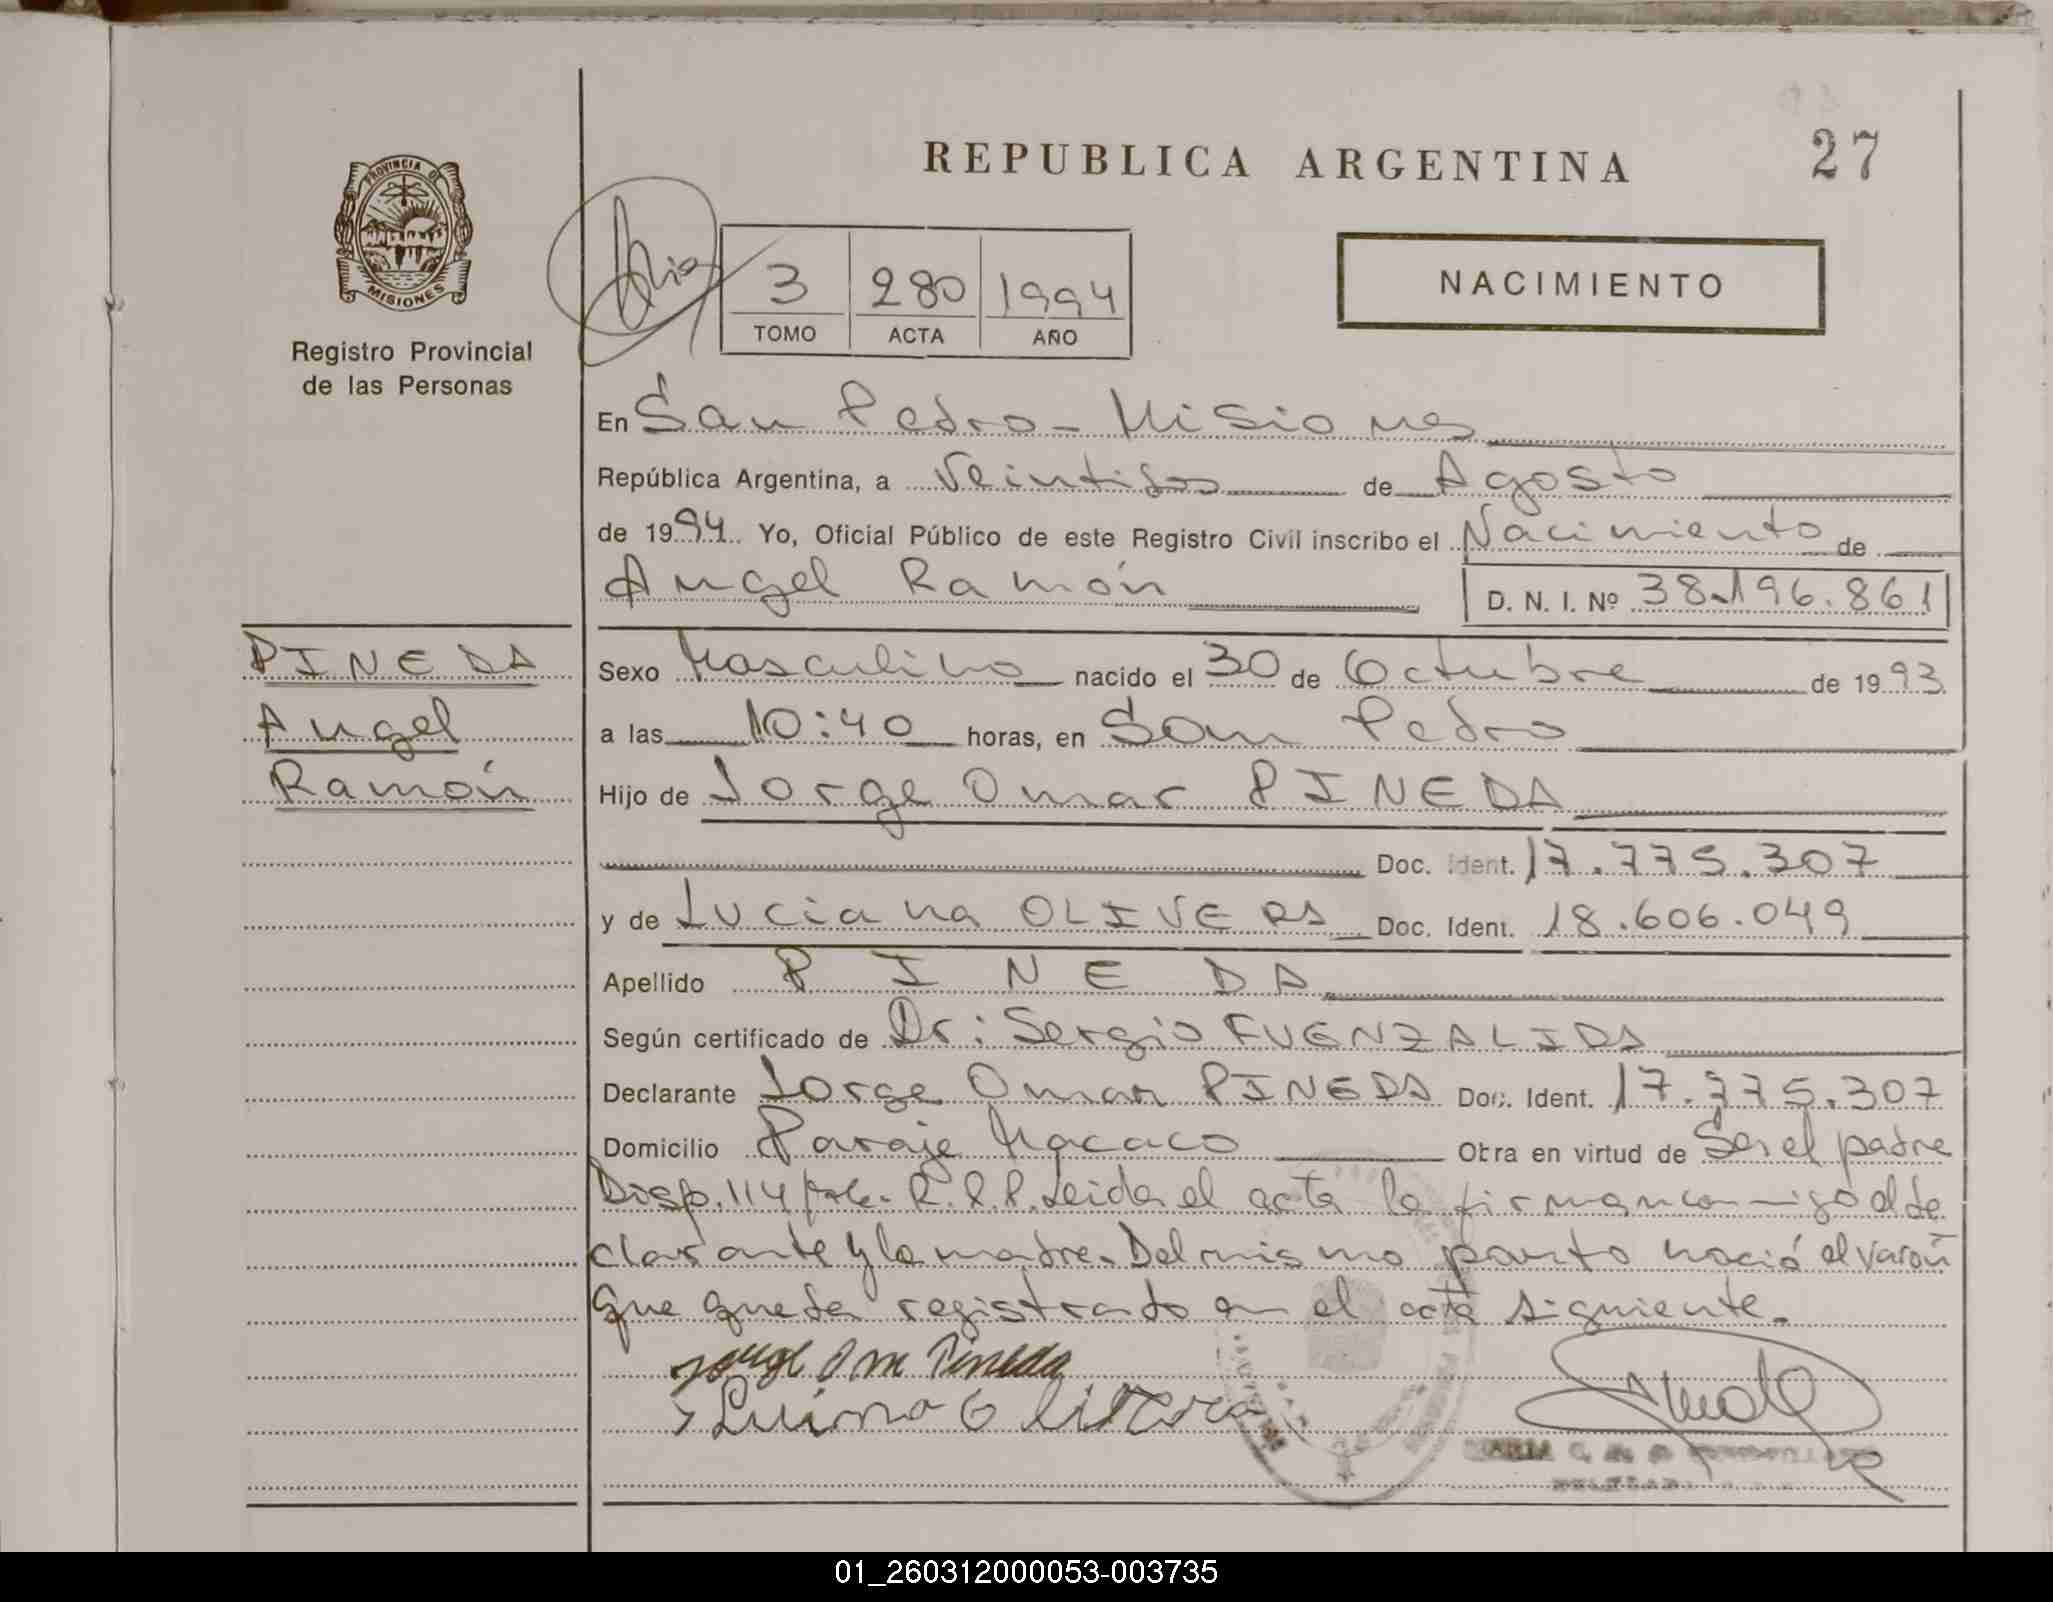 27
REPUBLICA ARGENTINA
PROVINCIA DE
MISIONES
Registro Provincial
de las Personas
NACIMIENTO
3 280 1994
TOMO ACTA AÑO
En San Pedro - Misiones
República Argentina, a Veintidos de Agosto
de 1994. Yo, Oficial Público de este Registro Civil inscribo el Nacimiento de
Angel Ramón D. N. I. Nº 38.196.861
PINEDA
Angel
Ramón
Sexo Masculino nacido el 30 de Octubre de 1993
a las 10:40 horas, en San Pedro
Hijo de Jorge Omar PINEDA
Doc. Ident. 17.775.307
y de Luciana OLIVERA Doc. Ident. 18.606.049
Apellido PINEDA
Según certificado de Dr: Sergio FUENZALIDA
Declarante Jorge Omar PINEDA Doc. Ident. 17.775.307
Domicilio Paraje Macaco Obra en virtud de Ser el padre
Disp. 114 R.P.P. Leida el acta la firman conmigo el de
clarante y la madre. Del mismo parto nació el varón
que queda registrado en el acta siguiente.
Jorge Om Pineda
MARIA
01_260312000053-003735